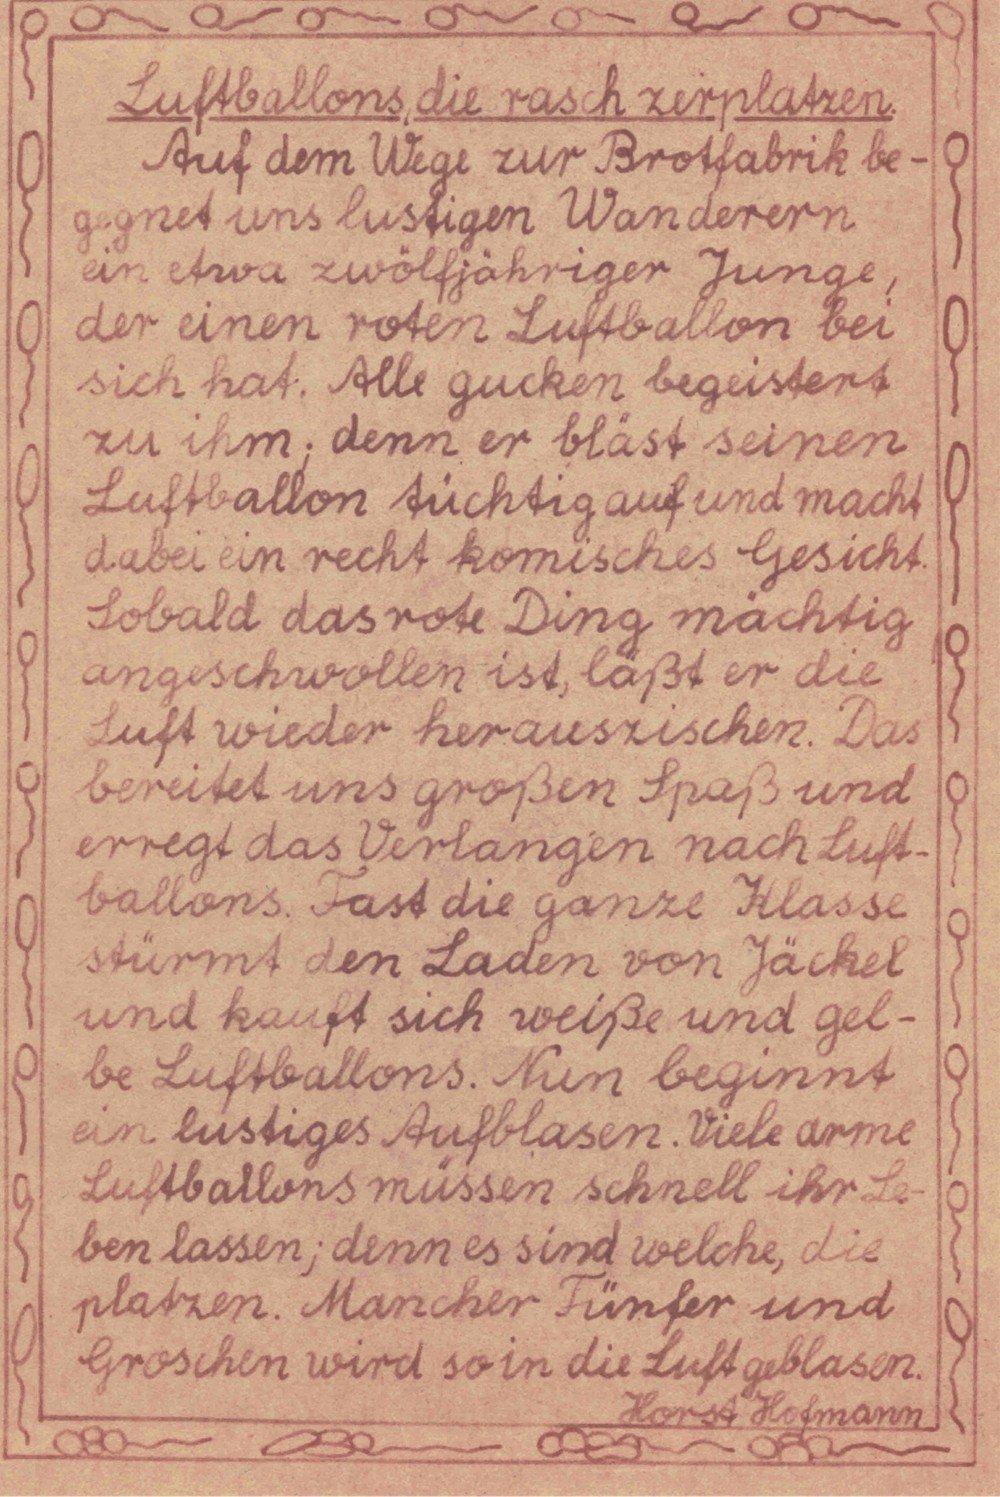 Luftballons, die rasch zerplatzen.
Auf dem Wege zur Brotfabrik be-
gegnet uns lustigen Wanderern
ein etwa zwölfjähriger Junge,
der einen roten Luftballon bei
sich hat. Alle gucken begeistert
zu ihm; denn er bläst seinen
Luftballon tüchtig auf und macht
dabei ein recht komisches Gesicht.
Sobald das rote Ding mächtig
angeschwollen ist, läßt er die
Luft wieder herauszischen. Das
bereitet uns großen Spaß und
erregt das Verlangen nach Luft-
ballons. Fast die ganze Klasse
stürmt den Laden von Jäckel
und kauft sich weiße und gel-
be Luftballons. Nun beginnt
ein lustiges Aufblasen. Viele arme
Luftballons müssen schnell ihr Le-
ben lassen; denn es sind welche, die
platzen. Mancher Fünfer und
Groschen wird so in die Luft geblasen.
Horst Hofmann